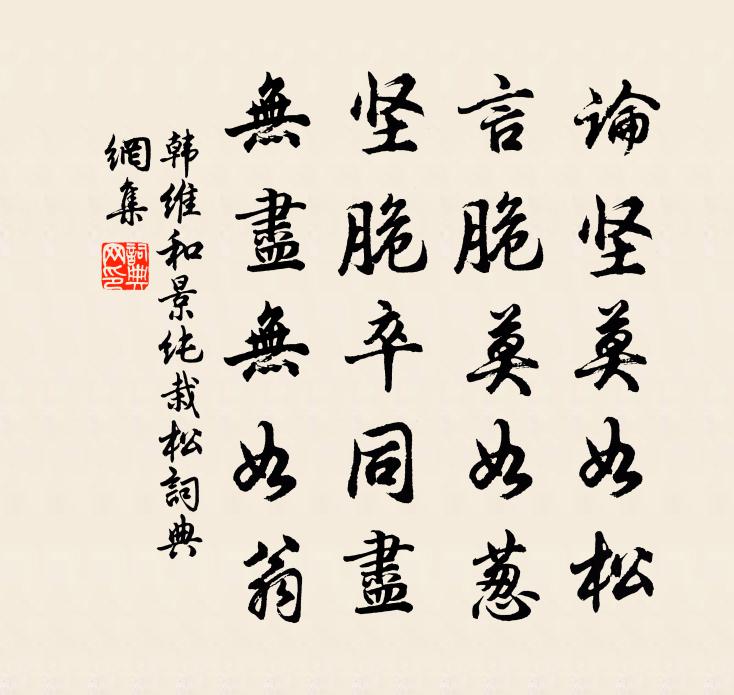 論坚莫如松
言脆莫如葱
坚脆卒同盡
無盡無如翁
韩维和景纯栽松詞典
網集
詞典网印